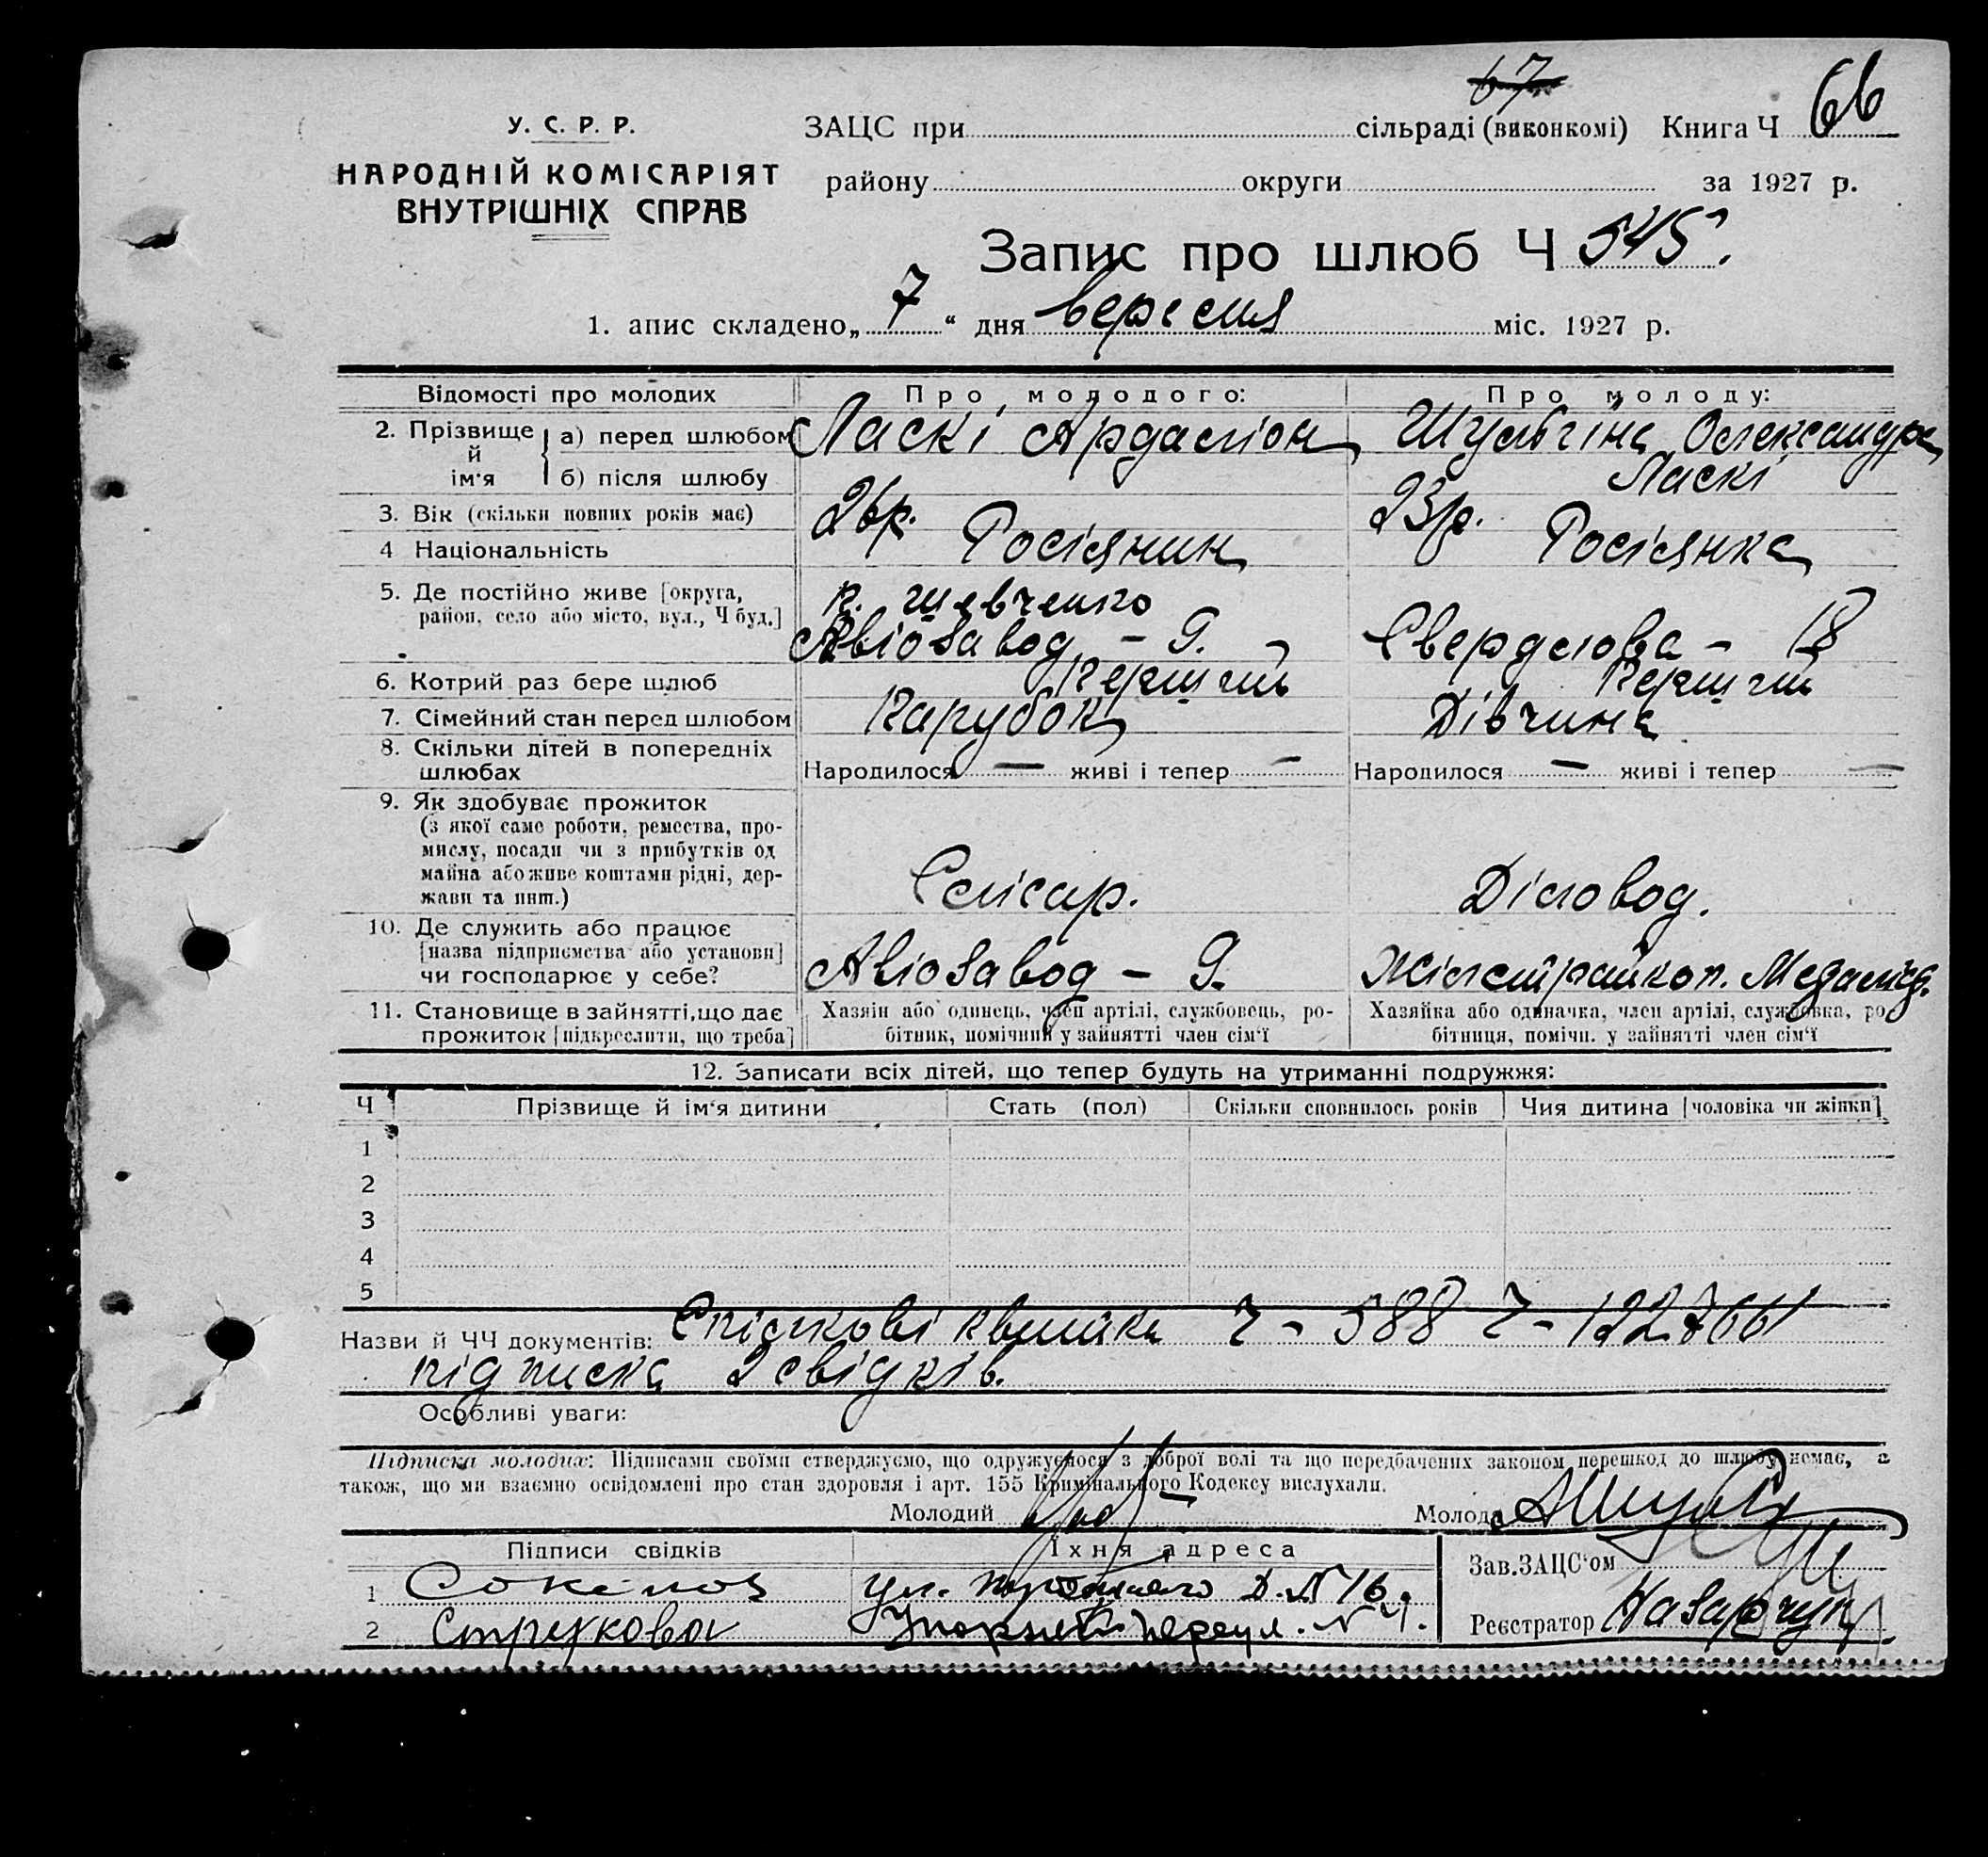 67
У. С. Р. Р.
НАРОДНІЙ КОМІСАРІЯТ
ВНУТРІШНІХ СПРАВ
ЗАЦС при сільраді (виконкомі) Книга Ч 66
району округи за 1927 р.
Запис про шлюб Ч 545.
1. апис складено „7“ дня вересня міс. 1927 р.
Відомості про молодих Про молодого: Про молоду:
2. Прізвище й ім'я а) перед шлюбом Ласкі Ардаліон Шульгіна Олександра
б) після шлюбу Ласкі
3. Вік (скільки повних років має) 26р. 23р.
4 Національність Росіянин Росіянка
5. Де постійно живе [округа, п. Шевченко
район, село або місто, вул., Ч буд.] Авіозавод - 9. Свердлова - 18
6. Котрий раз бере шлюб Перший Перший
7. Сімейний стан перед шлюбом Парубок Дівчина
8. Скільки дітей в попередніх
шлюбах Народилося — живі і тепер — Народилося — живі і тепер —
9. Як здобуває прожиток
(з якої саме роботи, ремества, про-
мислу, посади чи з прибутків од
майна або живе коштами рідні, дер-
жави та инш.) Слісар. Діловод.
10. Де служить або працює
[назва підприємства або установи]
чи господарює у себе? Авіозавод - 9.
11. Становище в зайнятті, що дає Хазяін або одинець, член артілі, службовець, ро- Хазяйка або одиначка, член артілі, службовка, ро
прожиток [підкреслити, що треба] бітник, помічний у зайнятті член сім'ї бітниця, помічн. у зайнятті член сім'ї
12. Записати всіх дітей, що тепер будуть на утриманні подружжя:
Ч Прізвище й ім'я дитини Стать (пол) Скільки сповнилось років Чия дитина [чоловіка чи жінки]
1
2
3
4
5
Назви й ЧЧ документів: Спілкові квитки Ч - 588 Ч - 1227661
підписка 2 свідків.
Особливі уваги:
Підписка молодих: Підписами своїми стверджуємо, що одружуємося з доброї волі та що передбачених законом перешкод до шлюбу немає, а
також, що ми взаємно освідомлені про стан здоровля і арт. 155 Кримінального Кодексу вислухали.
Молодий Молода
Підписи свідків Їхня адреса Зав. ЗАЦС'ом
1 ул. Д. N 16.
2 Стрелкова переул. N 4. Реєстратор Назарчук